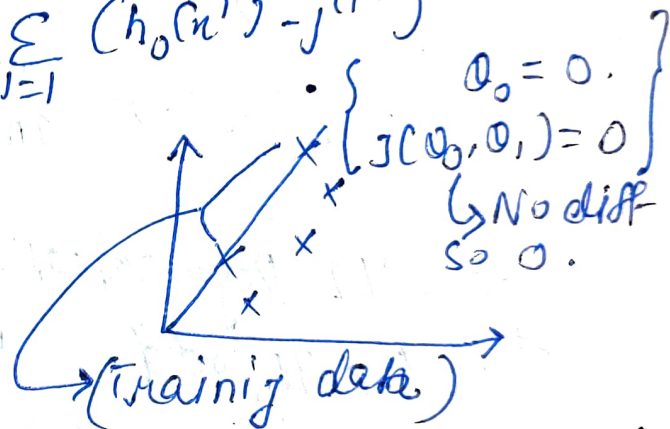 Σ (h₀(xⁱ) - y⁽ⁱ
i=1
θ₀ = 0.
J(θ₀, θ₁) = 0
↳ No diff
so 0.
(Trainig data)